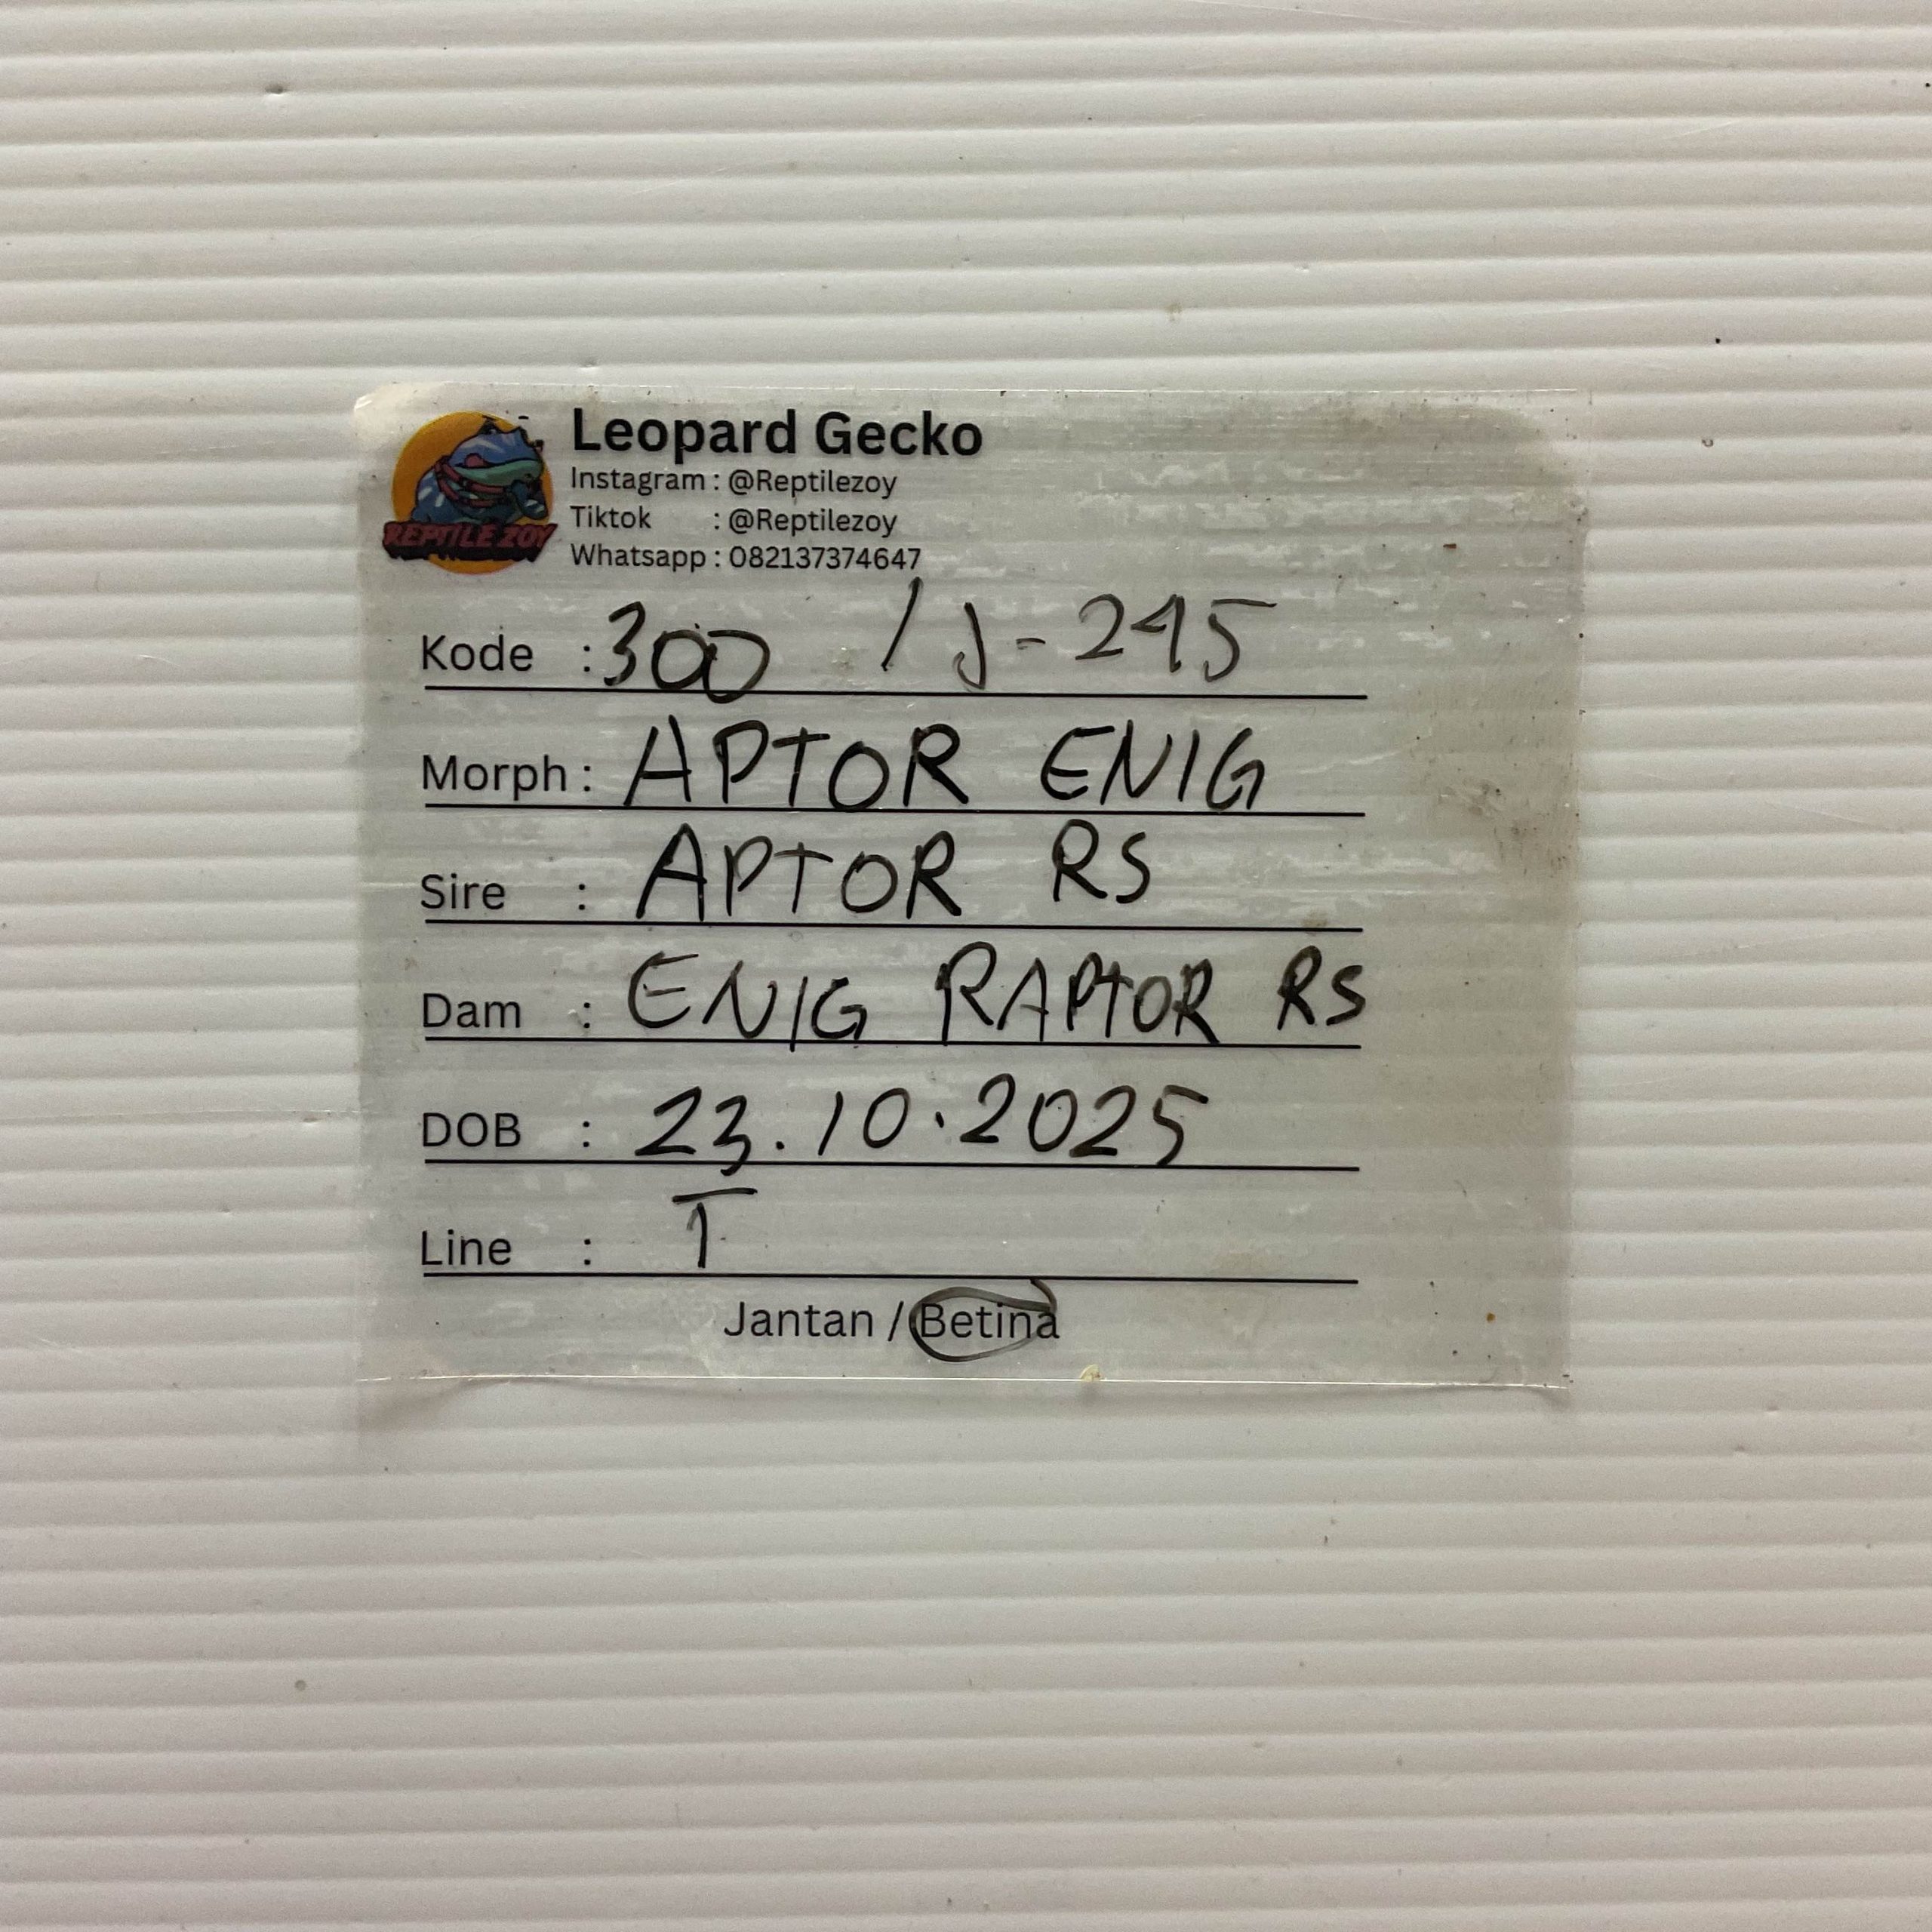 REPTILE ZOY
Leopard Gecko
Instagram : @Reptilezoy
Tiktok : @Reptilezoy
Whatsapp : 082137374647
Kode : 300 / J-245
Morph : APTOR ENIG
Sire : APTOR RS
Dam : ENIG RAPTOR RS
DOB : 23.10.2025
Line : T
Jantan / Betina